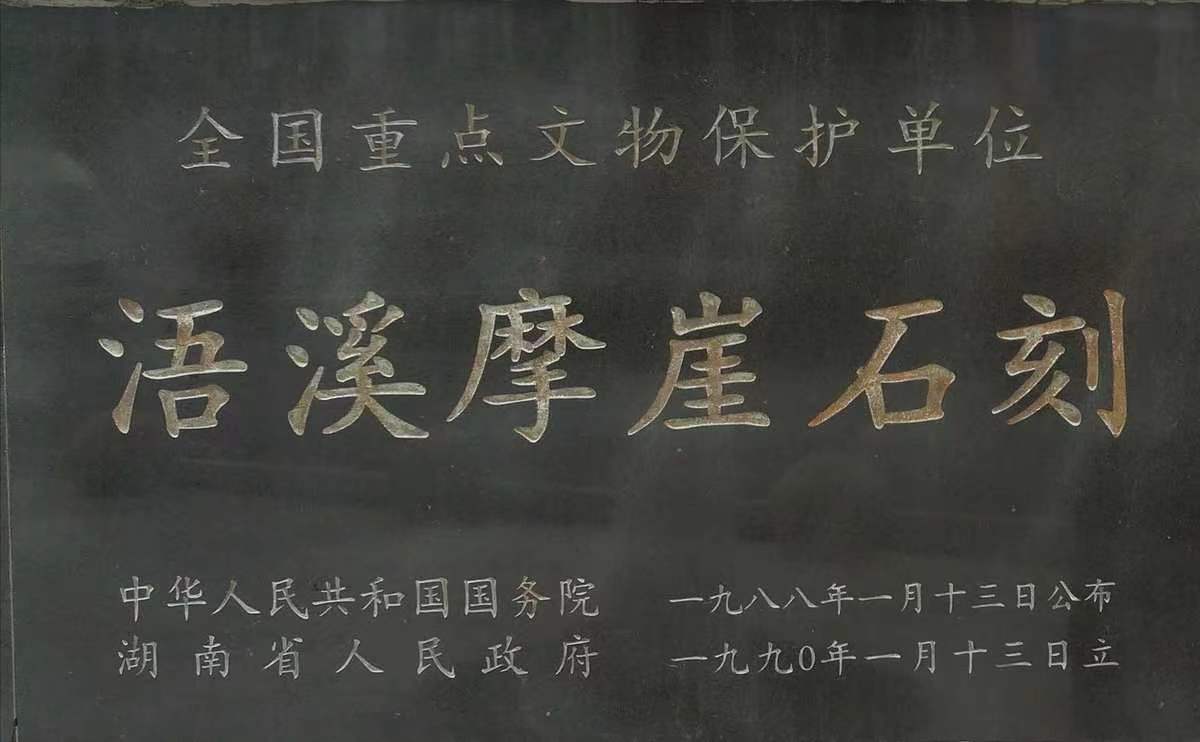 全国重点文物保护单位
浯溪摩崖石刻
中华人民共和国国务院 一九八八年一月十三日公布
湖南省人民政府 一九九0年一月十三日立